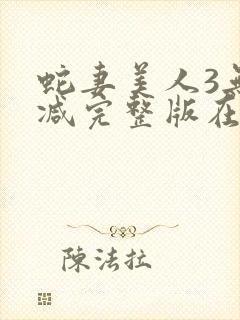 蛇妻美人3
减完整版在
陳法拉